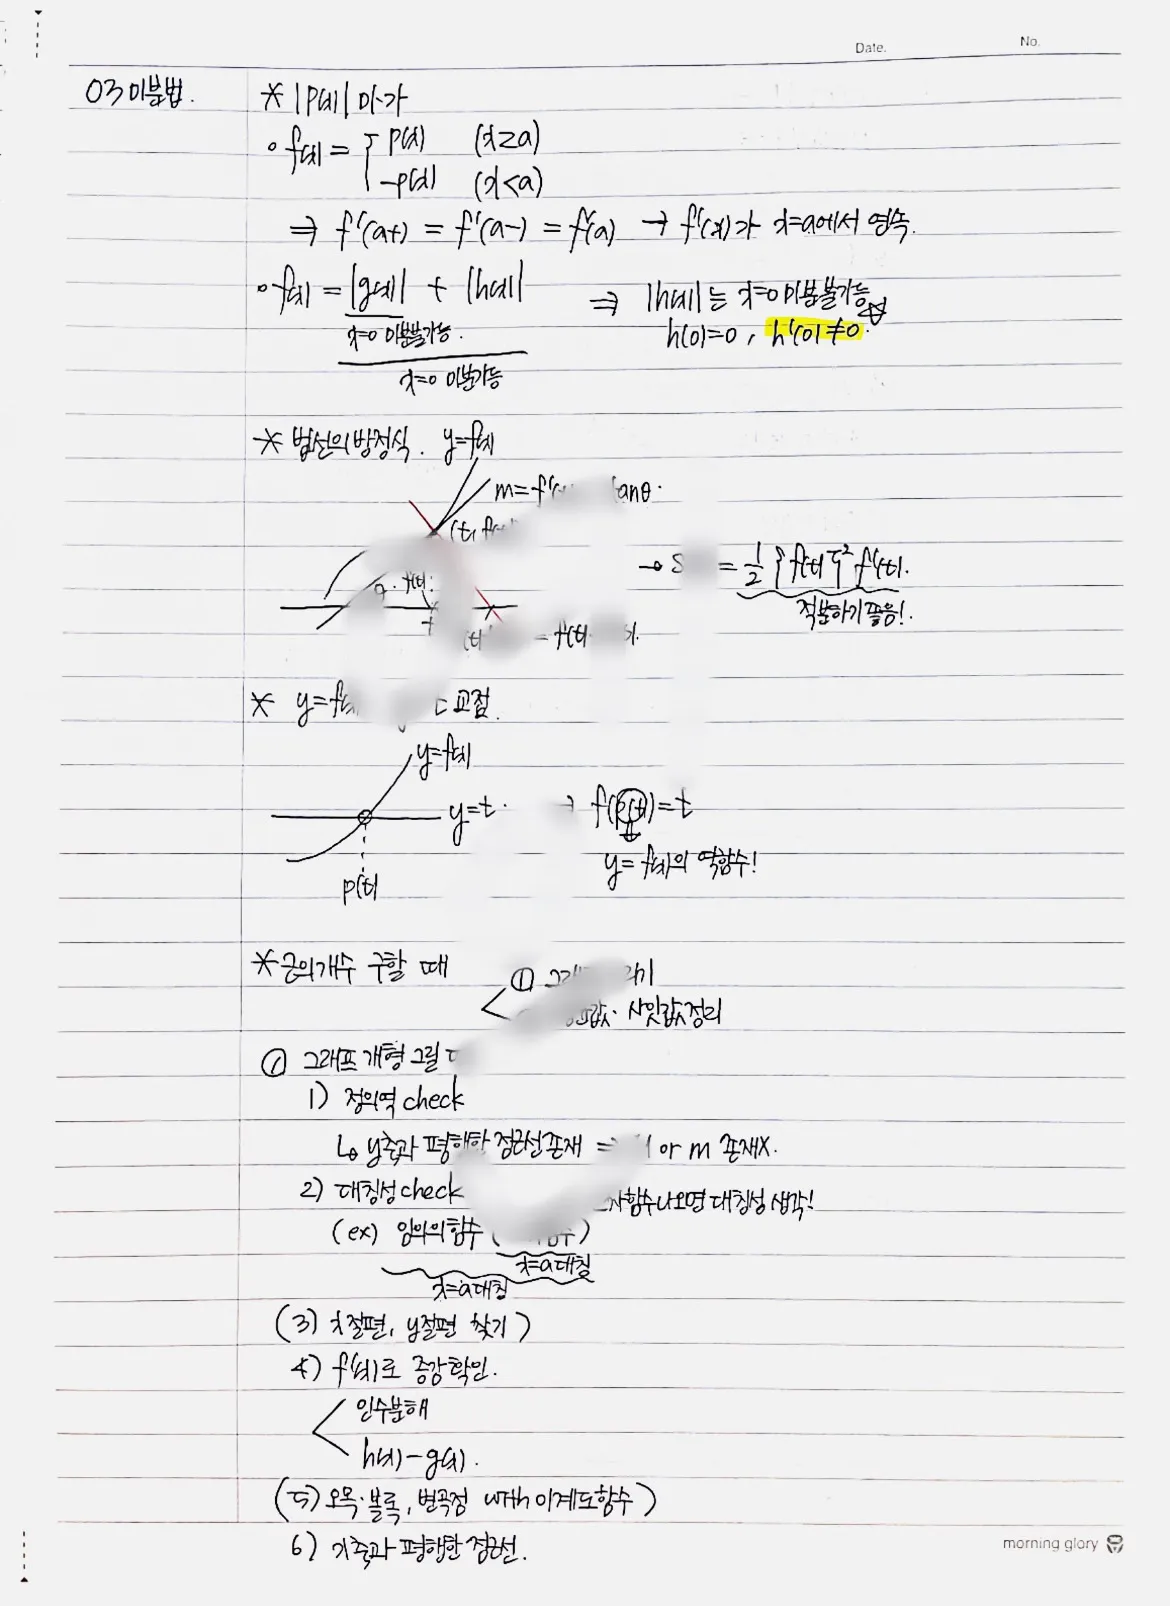 Date.
No.
03 미분법.
* |P(x)| 미·가
◦ f(x) = { p(x) (x≥a)
-p(x) (x<a)
⇒ f'(a+) = f'(a-) = f'(a) → f'(x)가 x=a에서 연속.
◦ f(x) = |g(x)| + |h(x)| ⇒ |h(x)|는 x=0 미분불가능 ☆
x=0 미분불가능. h(0)=0, h'(0)≠0.
x=0 미분가능
* 법선의 방정식. y=f(x)
m=f' tanθ.
(t, f
f(t) → S = 1/2 {f(t)}² f'(t).
적분하기 좋음!.
t = f(t)
* y=f(x) 교점.
y=f(x)
y=t. ⇒ f(p(t))=t
y=f(x)의 역함수!
p(t)
* 근의개수 구할 때
①
사잇값정리
① 그래프 개형 그릴
1) 정의역 check
↳ y축과 평행한 점근선존재 ⇒ M or m 존재X.
2) 대칭성 check 함수나오면 대칭성 생각!
(ex) 임의의함수 ( 함수)
x=a대칭
x=a대칭
(3) x절편, y절편 찾기)
4) f'(x)로 증감확인.
인수분해
h(x)-g(x).
(5) 오목·볼록, 변곡점 with 이계도함수)
6) x축과 평행한 점근선.
morning glory